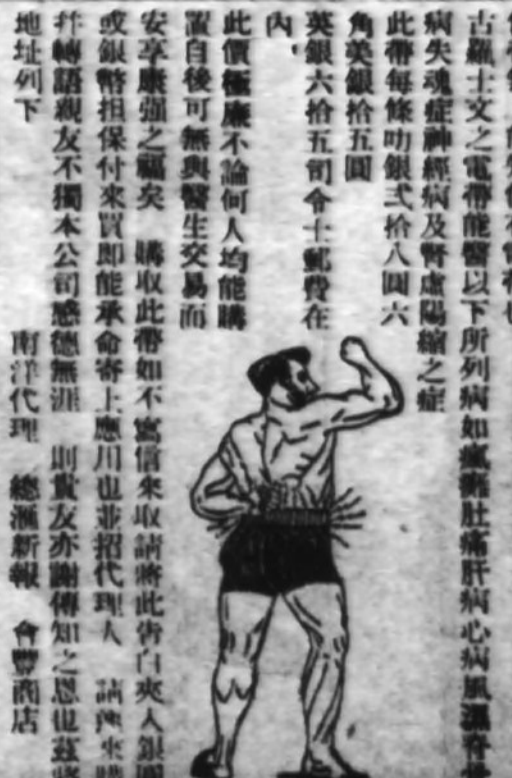 古羅士文之電帶能醫以下所列病如瘋癱肚痛肝病心病風濕脊
病失魂症神經病及腎虛陽縮之症
此帶每條叻銀弍拾八圓六
角美銀拾五圓
英銀六拾五司令士郵費在
內
此價極廉不論何人均能購
置自後可無與醫生交易而
安享康强之福矣 購取此帶如不寫信來取請將此告白夾入銀
或銀幣担保付來買即能承命寄上應用也並招代理人 請
幷轉語親友不獨本公司感德無涯 則貴友亦謝傳知之恩也茲將
地址列下 南洋代理 總滙新報 會豐商店